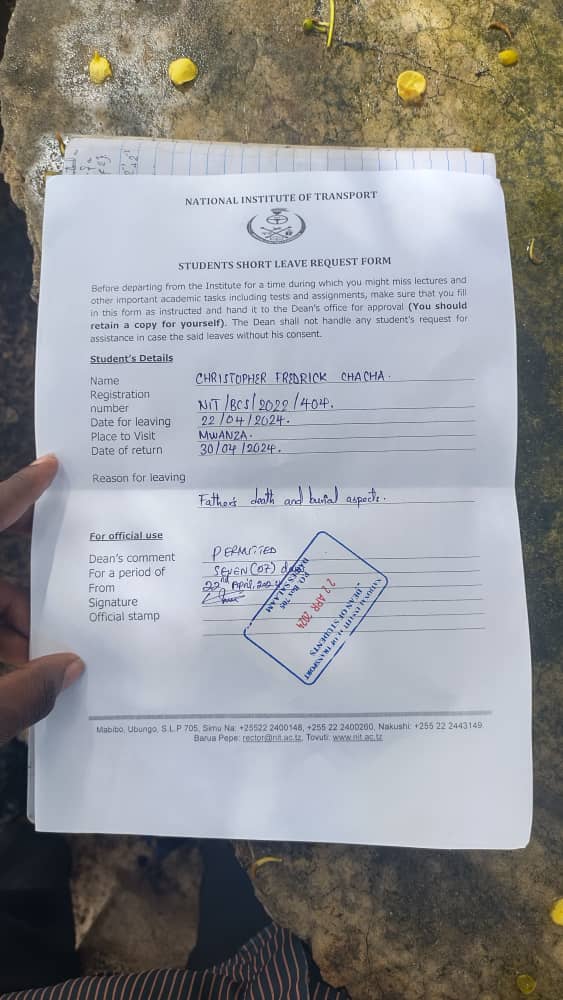 NATIONAL INSTITUTE OF TRANSPORT
STUDENTS SHORT LEAVE REQUEST FORM
Before departing from the Institute for a time during which you might miss lectures and
other important academic tasks including tests and assignments, make sure that you fill
in this form as instructed and hand it to the Dean's office for approval (You should
retain a copy for yourself). The Dean shall not handle any student's request for
assistance in case the said leaves without his consent.
Student's Details
Name CHRISTOPHER FREDRICK CHACHA.
Registration
number NIT/BCS/2022/404.
Date for leaving 22/04/2024.
Place to Visit MWANZA.
Date of return 30/04/2024.
Reason for leaving
Father's death and burial aspects.
For official use
Dean's comment PERMITTED
For a period of SEVEN (07) days
From 22nd April, 2024
Signature
Official stamp
NATIONAL INSTITUTE OF TRANSPORT
DEAN OF STUDENTS
22 APR 2024
P.O. Box 705
DAR ES SALAAM
Mabibo, Ubungo, S.L.P 705, Simu Na: +25522 2400148, +255 22 2400260, Nakushi: +255 22 2443149.
Barua Pepe: rector@nit.ac.tz, Tovuti: www.nit.ac.tz